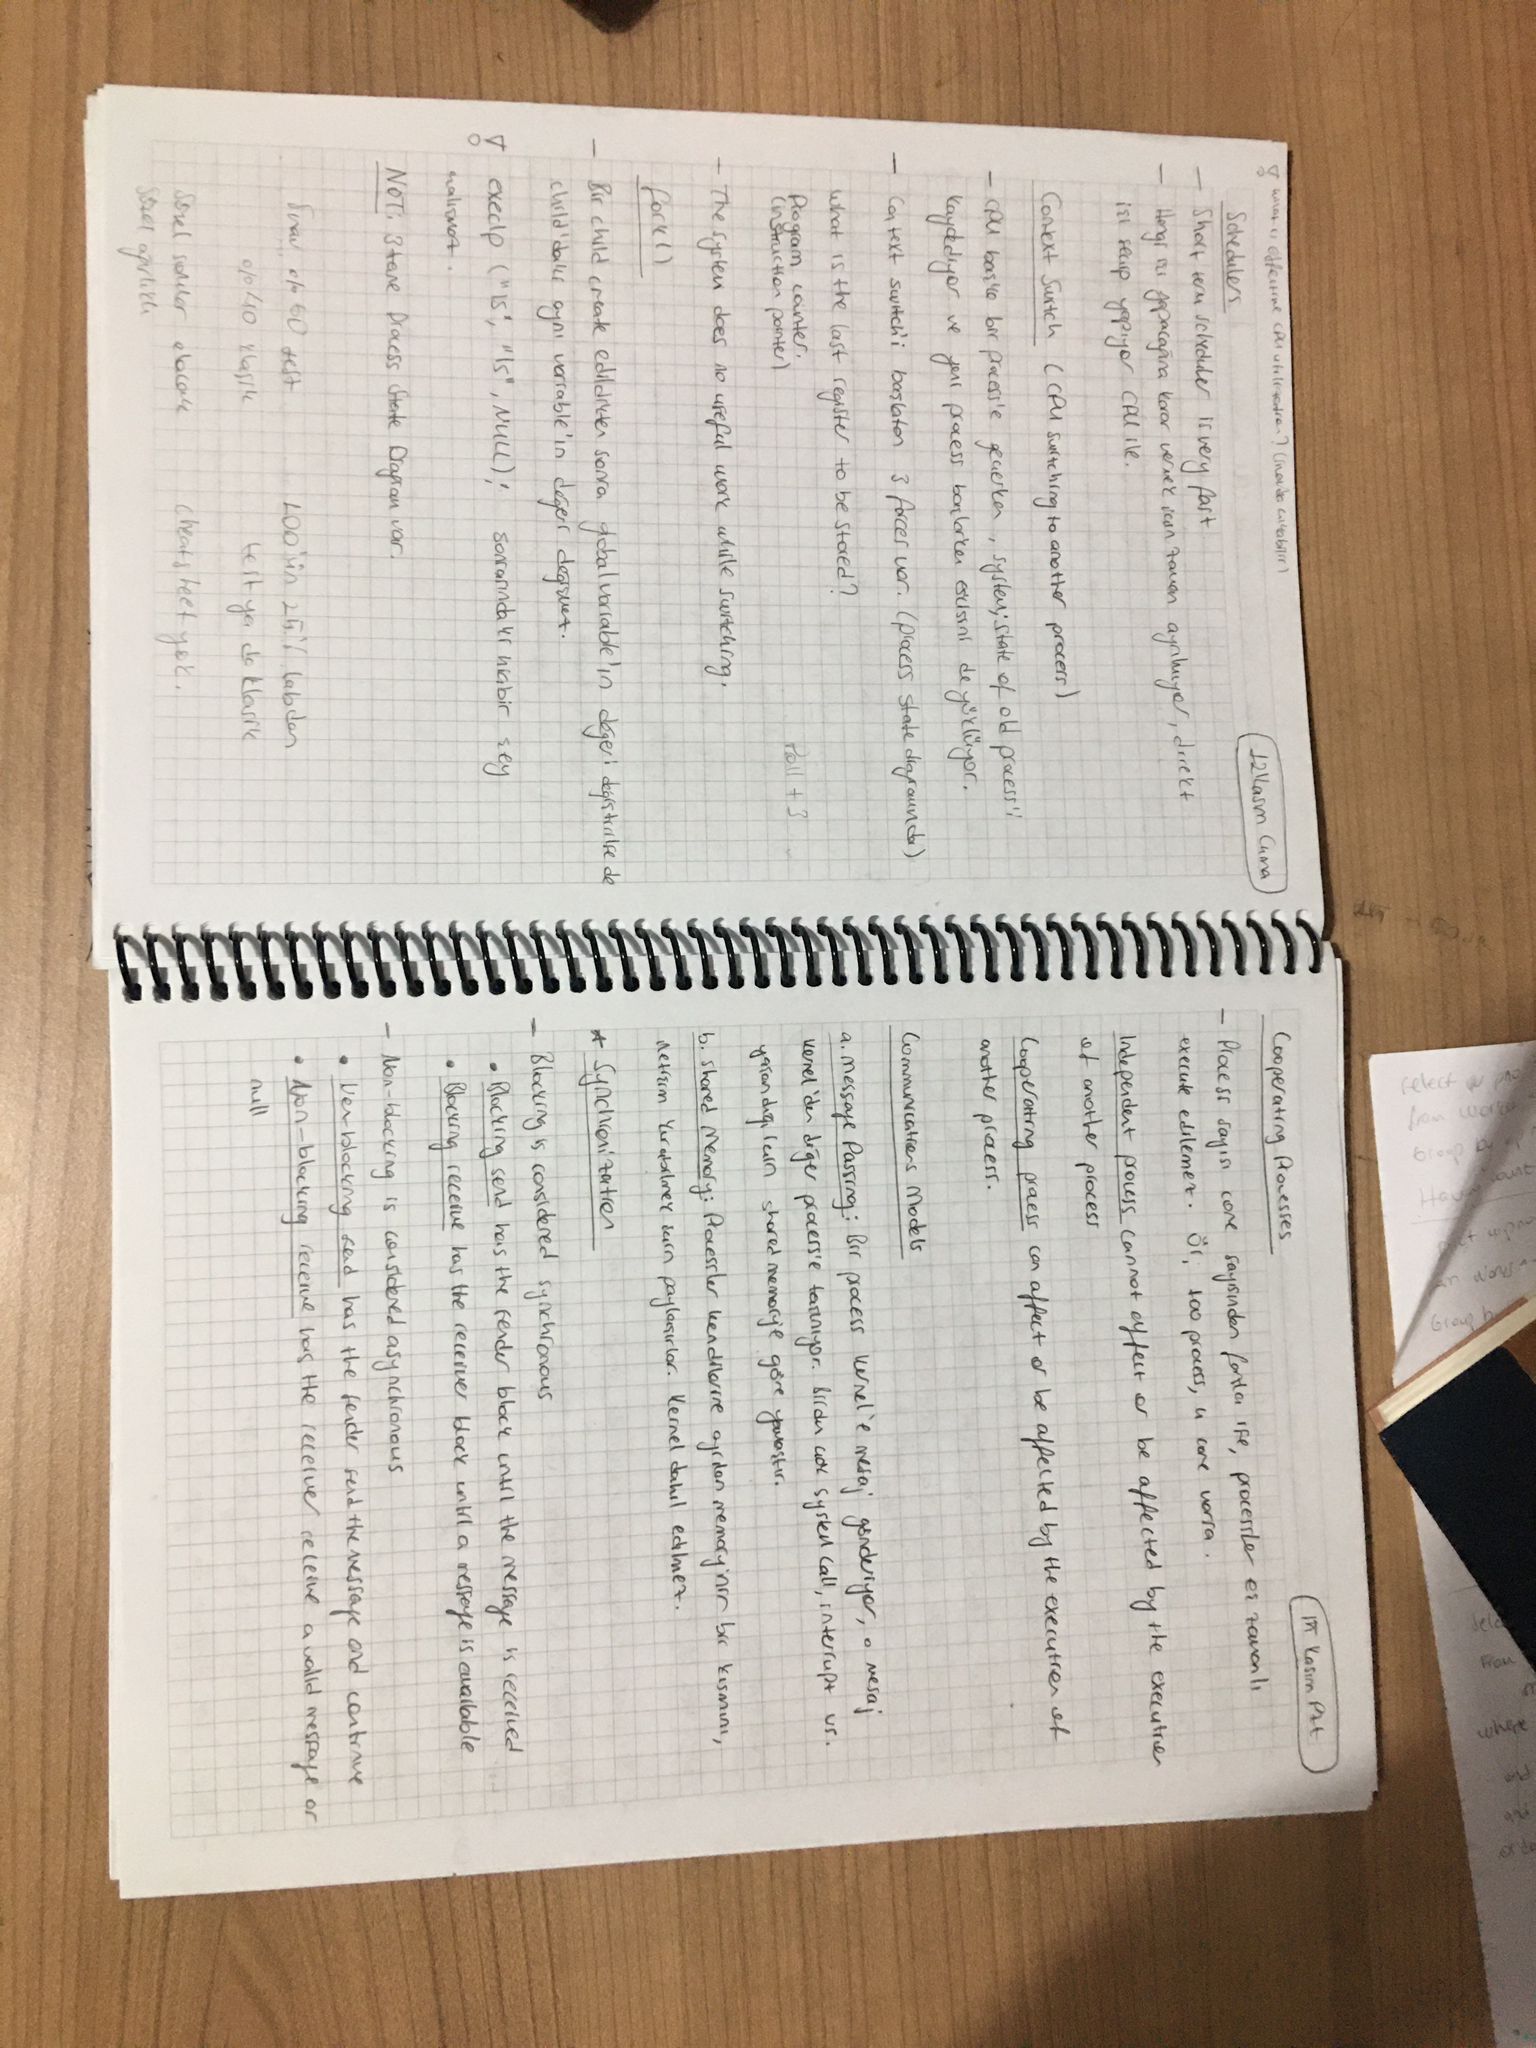 12 Kasım Cuma
what is effective CPU utilization? (sınavda çıkabilir)
Schedulers
- Short term scheduler is very fast
- Hangi işi yapacağına karar vermek için zaman ayırmıyor, direkt
işi seçip yapıyor CPU ile.
Context Switch (CPU switching to another process)
- CPU başka bir process'e geçerken, system; state of old process'i
kaydediyor ve yeni process başlarken eskisini de yüklüyor.
- Context switch'i başlatan 3 forces var. (process state diagramında)
what is the last register to be stored?
Program counter.
(instruction pointer)
- The system does no useful work while switching.
fork()
- Bir child create edildikten sonra global variable'ın değeri değiştirilse de
child'daki aynı variable'ın değeri değişmez.
execlp ("ls", "ls", NULL); sonrasındaki hiçbir şey
NOT: 3 tane Process State Diagram var.
Sınav %60 test 100'ün 25'i labdan
%40 klasik test ya da klasik
Sözel sorular olacak cheatsheet yok.
Sözel ağırlıklı
Cooperating Processes
- Process sayısı core sayısından fazla ise, processler eş zamanlı
execute edilemez. Ör, 100 process, 4 core varsa.
Independent process cannot affect or be affected by the execution
of another process
Cooperating process can affect or be affected by the execution of
another process.
Communications Models
a. Message Passing: Bir process kernel'e mesaj gönderiyor, o mesaj
kernel'den diğer process'e taşınıyor. Birden çok system call, interrupt vs.
yaşandığı için shared memory'e göre yavaştır.
b. Shared Memory: Processler kendilerine ayrılan memory'nin bir kısmını,
iletişim kurabilmek için paylaşırlar. Kernel dahil edilmez.
* Synchronization
- Blocking is considered synchronous
• Blocking send has the sender block until the message is received
• Blocking receive has the receiver block until a message is available
- Non-blocking is considered asynchronous
• Non-blocking send has the sender send the message and continue
• Non-blocking receive has the receiver receive a valid message or
null